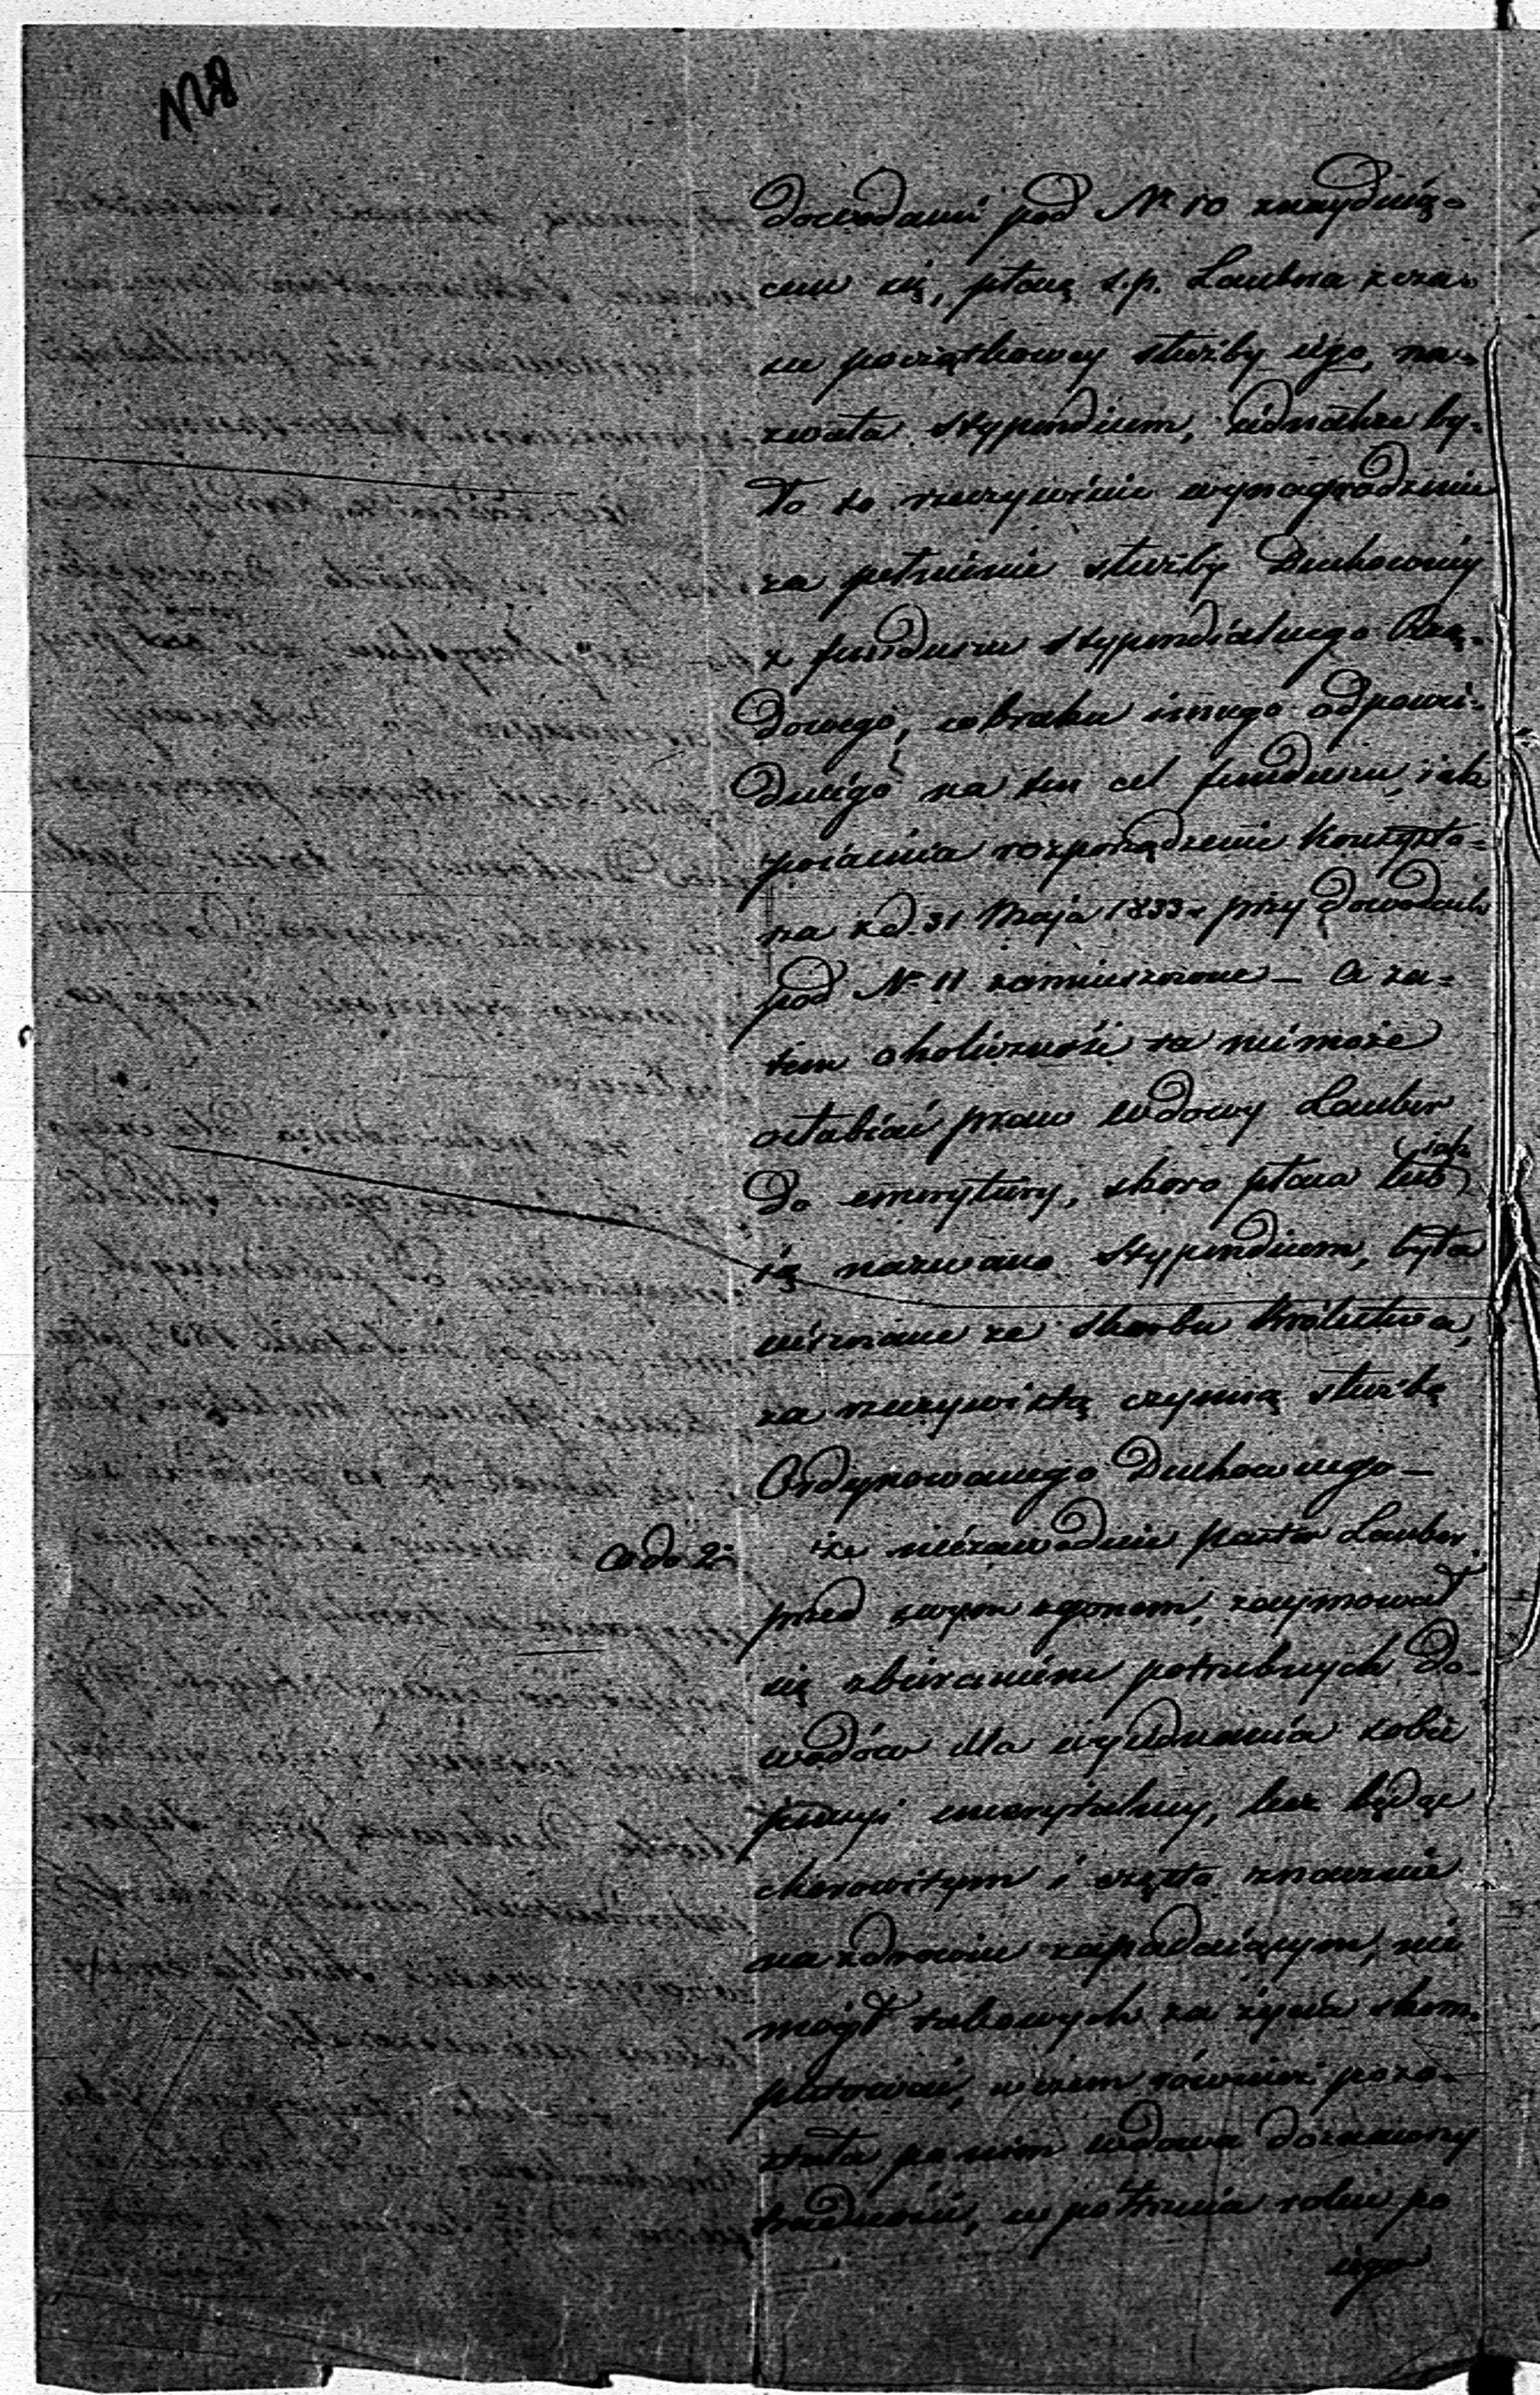 128
dowodami pod Nr 10 znaydują=
cemi się, płacę s.p. Laubra z cza=
su początkowey służby iégo, na=
zwała stypendium, iednakże by=
ło to rzeczywiście wynagrodzenie
za pełnienie służby Duchownéy
z funduszu stypendialnego Rzą=
dowego, w braku innego odpowie=
dniégo na ten cel funduszu, iak
poiaśnia rozporządzenie Konsysto=
rza z d. 31 Maja 1833 r przy dowodach
pod Nr 11 zamieszczone — A za=
tem okoliczność ta nie może
osłabiać praw wdowy Lauber
do emerytury, skoro płaca lub iak
ią nazwano stypendium, była
uiszczane ze Skarbu Królestwa,
za rzeczywistą czynną służbę
Ordynowanego Duchownego —
Co do 2o że niezawodnie pastor Lauber
przed swym zgonem, zaymował
się zbieraniem potrzebnych do=
wodów dla wyiednania sobie
pensyi emerytalney, lecz będąc
chorowitym i często znacznie
na zdrowiu zapadaiącym, nie
mógł takowych za życia skom=
pletować, w czem również pozo=
stała po nim wdowa doznawszy
trudności, w półtrzecia roku po
iégo